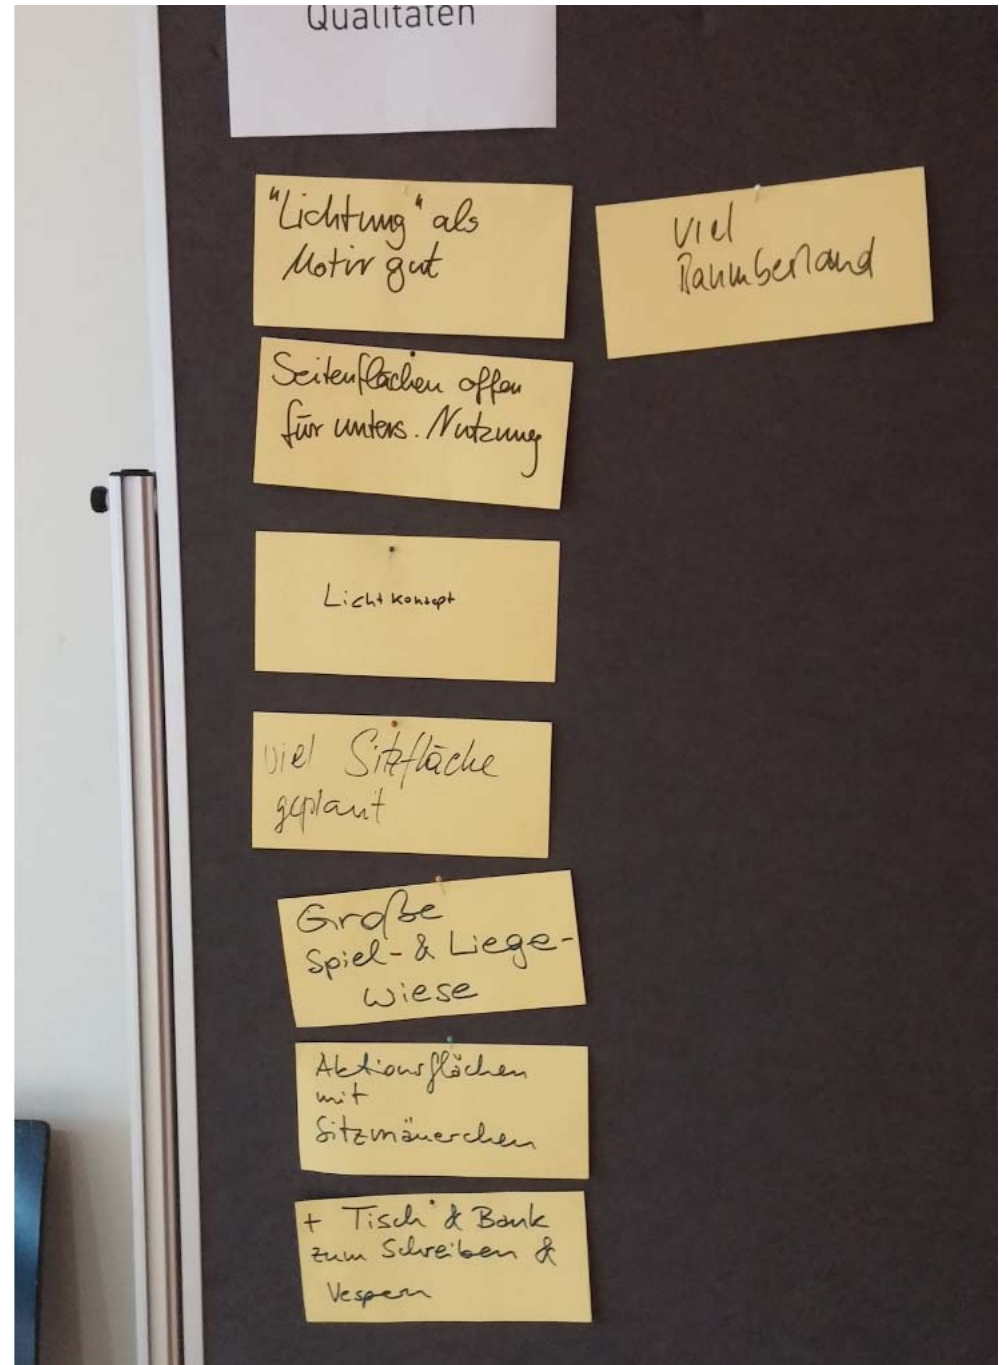 Qualitäten
"Lichtung" als
Motiv gut
Seitenflächen offen
für unters. Nutzung
Lichtkonzept
viel Sitzfläche
geplant
Große
Spiel- & Liege-
wiese
Aktionsflächen
mit
Sitzmäuerchen
+ Tisch & Bank
zum Schreiben &
Vespern
viel
Baumbestand